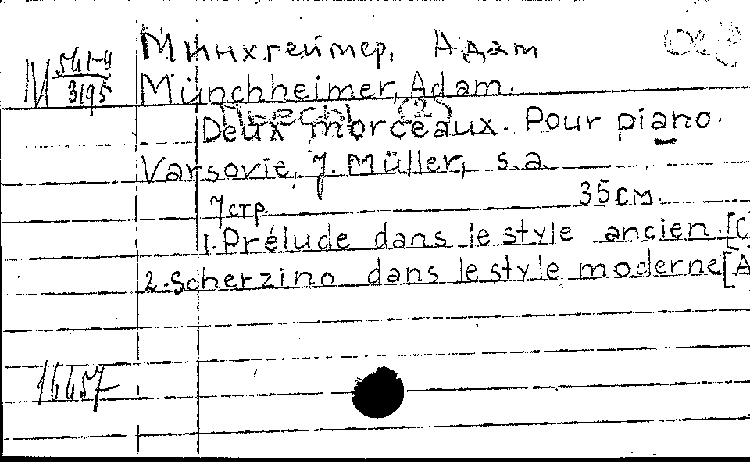 Минхгеймер, Адам
М 541-9
3195
Münchheimer, Adam.
Deux morceaux. Pour piano.
Varsovie, J. Müller, s.a.
7 стр 35 см.
1. Prélude dans le style ancien. [C
2. Scherzino dans le style moderne [A
16657